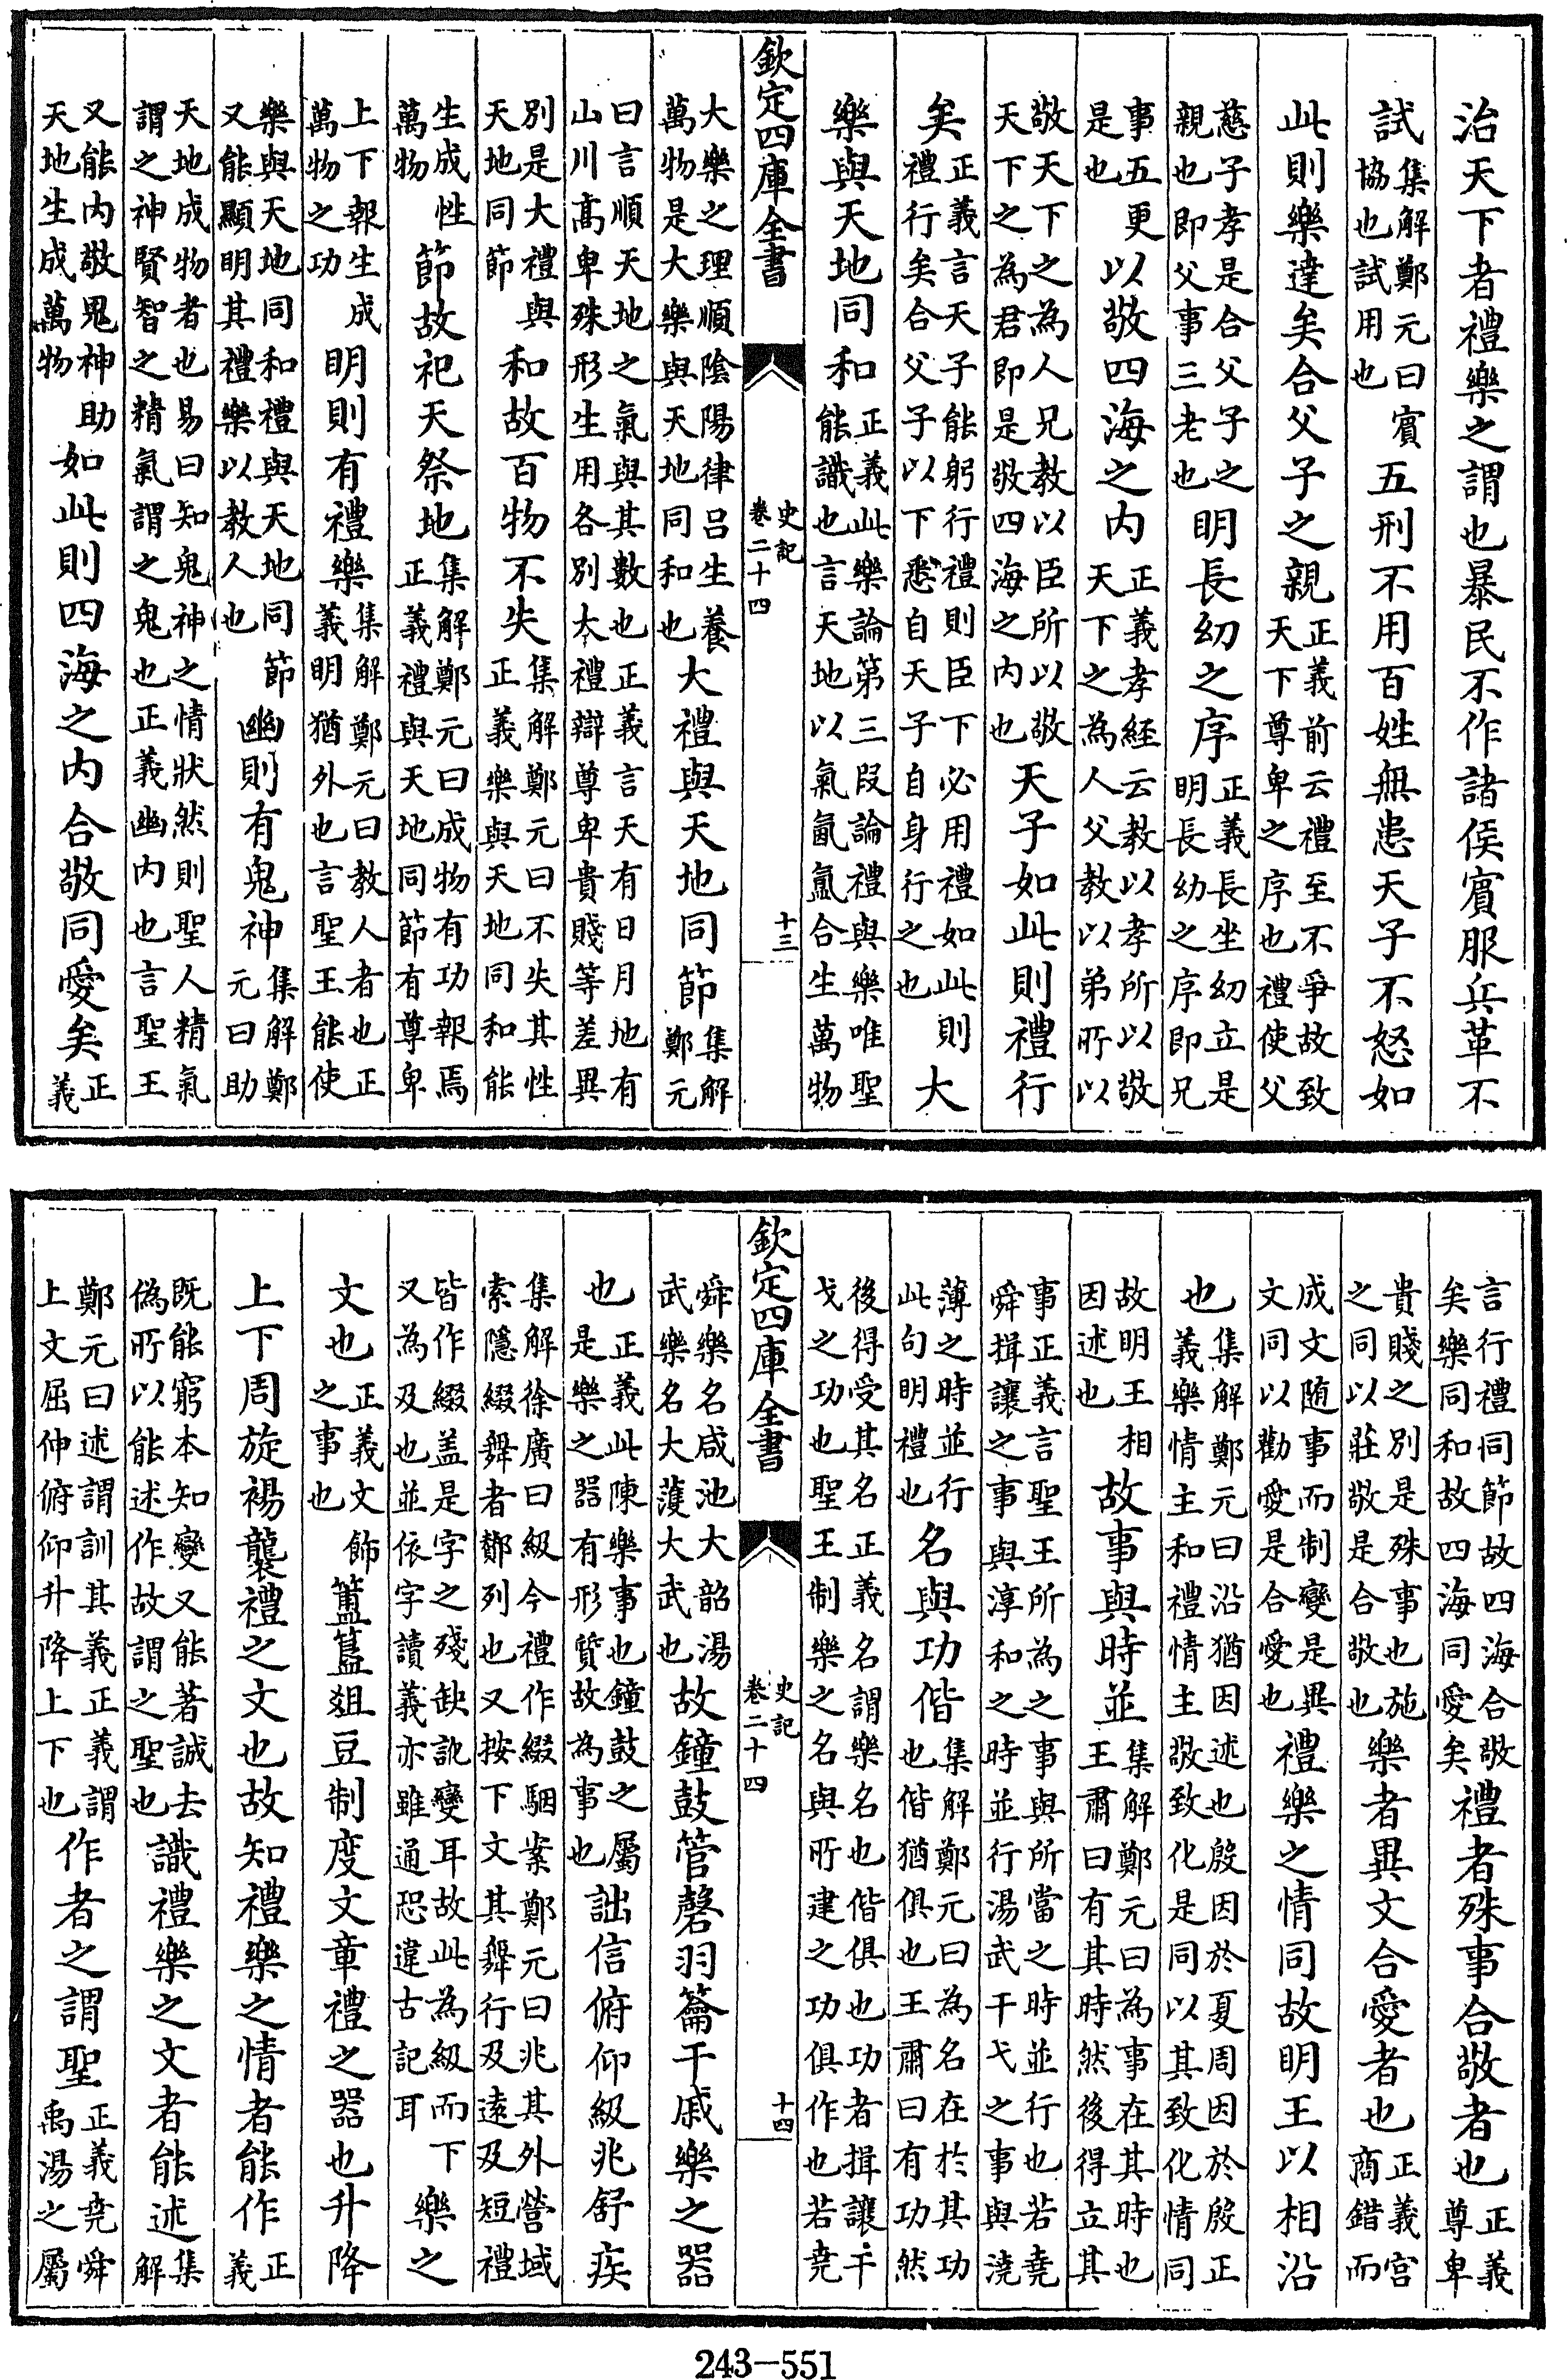 治天下者禮樂之謂也暴民不作諸侯賓服兵革不
試集解鄭元曰賓協也試用也五刑不用百姓無患天子不怒如
此則樂達矣合父子之親正義前云禮至不爭故致天下尊卑之序也禮使父
慈子孝是合父子之親也即父事三老也明長幼之序正義長坐幼立是明長幼之序即兄
事五更是也以敬四海之内正義孝經云教以孝所以敬天下之為人父教以弟所以
敬天下之為人兄教以臣所以敬天下之為君即是敬四海之内也天子如此則禮行
矣正義言天子能躬行禮則臣下必用禮如此則禮行矣合父子以下悉自天子自身行之也大
樂與天地同和正義此樂論第三叚論禮與樂唯聖能識也言天地以氣氤氲合生萬物
欽定四庫全書 史記卷二十四 十三
大樂之理順陰陽律呂生養萬物是大樂與天地同和也大禮與天地同節集解鄭元
曰言順天地之氣與其數也正義言天有日月地有山川高卑殊形生用各別大禮辯尊卑貴賤等差異
別是大禮與天地同節和故百物不失集解鄭元曰不失其性正義樂與天地同和能
生成性萬物節故祀天祭地集解鄭元曰成物有功報焉正義禮與天地同節有尊卑
上下報生成萬物之功明則有禮樂集解鄭元曰教人者也正義明猶外也言聖王能使
樂與天地同和禮與天地同節又能顯明其禮樂以教人也幽則有鬼神集解鄭元曰助
天地成物者也易曰知鬼神之情狀然則聖人精氣謂之神賢智之精氣謂之鬼也正義幽内也言聖王
又能内敬鬼神助天地生成萬物如此則四海之内合敬同愛矣正義
言行禮同節故四海合敬矣樂同和故四海同愛矣禮者殊事合敬者也正義尊卑
貴賤之別是殊事也施之同以莊敬是合敬也樂者異文合愛者也正義宫商錯而
成文随事而制變是異文同以勸愛是合愛也禮樂之情同故明王以相沿
也集解鄭元曰沿猶因述也殷因於夏周因於殷正義樂情主和禮情主敬致化是同以其致化情同
故明王相因述也故事與時並集解鄭元曰為事在其時也王肅曰有其時然後得立其
事正義言聖王所為之事與所當之時並行也若堯舜揖讓之事與淳和之時並行湯武干戈之事與澆
薄之時並行此句明禮也名與功偕集解鄭元曰為名在於其功也偕猶俱也王肅曰有功然
後得受其名正義名謂樂名也偕俱也功者揖讓干戈之功也聖王制樂之名與所建之功俱作也若堯
欽定四庫全書 史記卷二十四 十四
舜樂名咸池大韶湯武樂名大濩大武也故鐘鼓管磬羽籥干戚樂之器
也正義此陳樂事也鐘鼓之屬是樂之器有形質故為事也詘信俯仰級兆舒疾
集解徐廣曰級今禮作綴駰案鄭元曰兆其外營域索隱綴舞者酇列也又按下文其舞行及逺及短禮
皆作綴盖是字之殘缺訛變耳故此為級而下又為及也並依字讀義亦雖通恐違古記耳樂之
文也正義文飾之事也簠簋爼豆制度文章禮之器也升降
上下周旋裼襲禮之文也故知禮樂之情者能作正義
既能窮本知變又能著誠去偽所以能述作故謂之聖也識禮樂之文者能述集解
鄭元曰述謂訓其義正義謂上文屈伸俯仰升降上下也作者之謂聖正義堯舜禹湯之屬
243—551